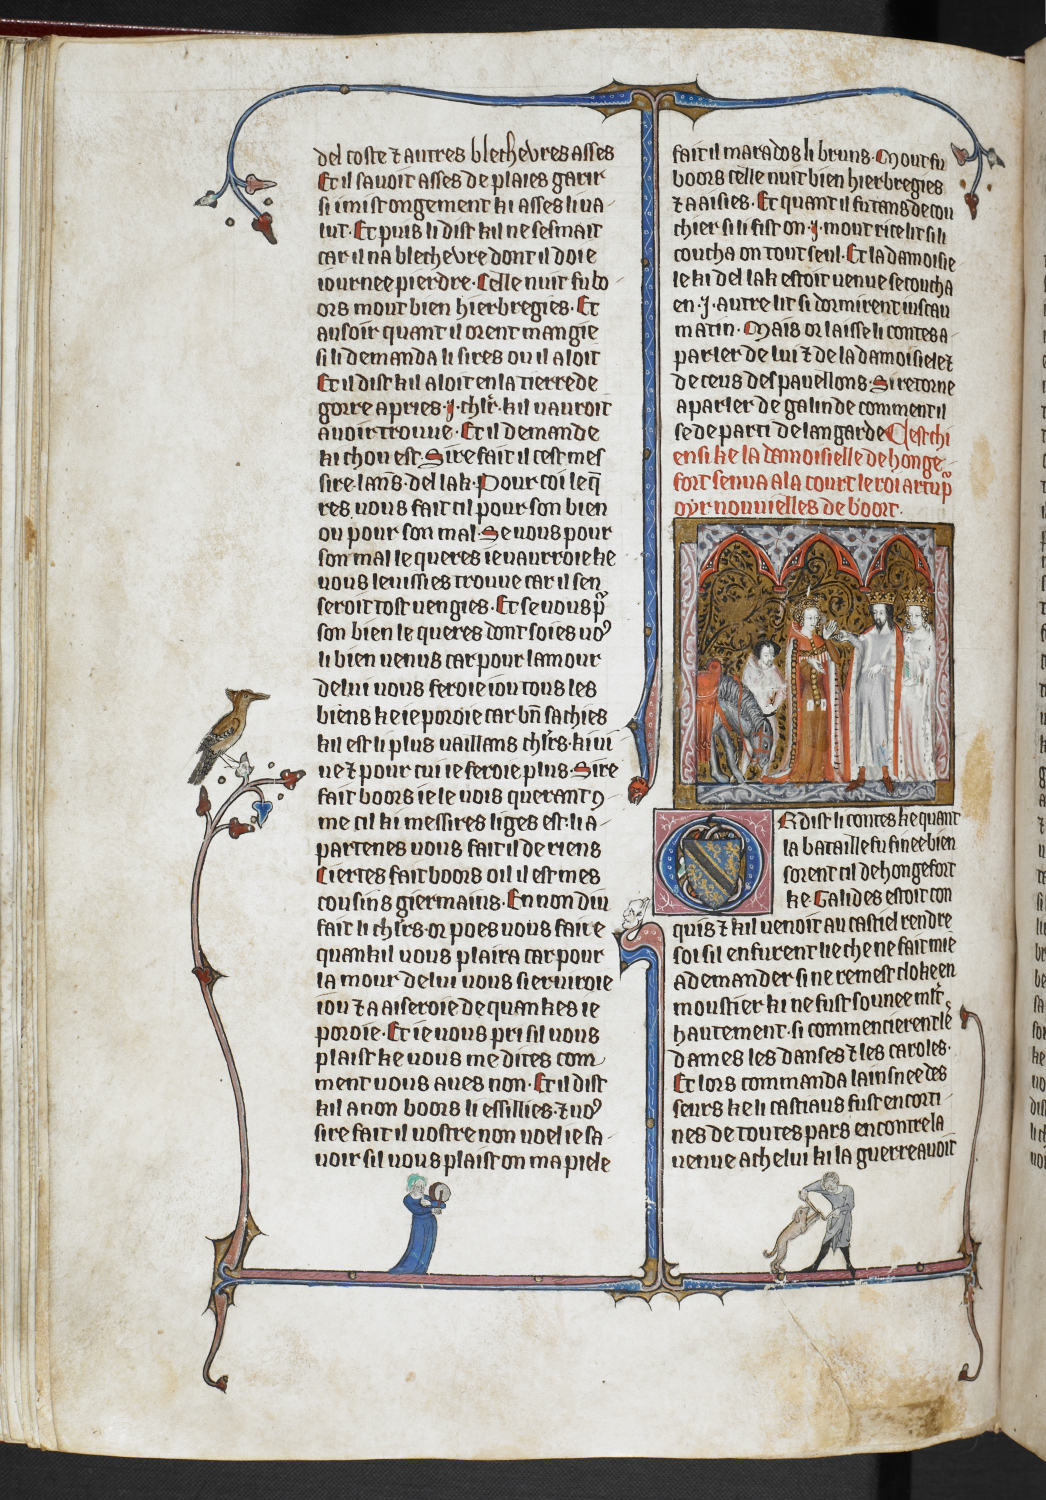 del coste ⁊ autres blecheures asses
Et il sauoit asses de plaies garir
si i mist ongement ki asses li ua
lut. Et puis li dist kil ne sesmait
car il na blecheure dont il doie
iournee pierdre. Celle nuit fu bo
ors mout bien hierbregies. Et
au soir quant il orent mangie
si li demanda li sires ou il aloit
Et il dist kil aloit en la tierre de
gorre apries .j. chlr. kil uauroit
auoir trouue. Et il demande
ki chou est. Sire fait il cest mes
sire lans. del lak. Pour coi le q̄
res uous fait cil pour son bien
ou pour son mal. Se uous pour
son mal le queres ie uaurroie ke
uous leuissies trouue car il sen
seroit tost uengies. Et se uous p̄
son bien le queres dont soies uo9
li bien uenus car pour lamour
de lui uous feroie iou tous les
biens ke ie poroie car bn̄ sachies
kil est li plus uaillans chlr̄s. ki ui
ue ⁊ pour cui ie feroie plus. Sire
fait boors ie le uois querant 9
me cil ki messires liges est. li a
partenes uous fait il de riens
Ciertes fait boors oil il est mes
cousins giermains. En non diu
fait li chlr̄s. or poes uous faire
quankil uous plaira car pour
lamour de lui uous sieruiroie
iou ⁊ aaiseroie de quankes ie
poroie. Et ie uous pri sil uous
plaist ke uous me dites com
ment uous aues non. Et il dist
kil a non boors li essillies. ⁊ uo9
sire fait il uostre non uoel ie sa
uoir sil uous plaist on mapiele
fait il marados li bruns. Mout fu
boors celle nuit bien hierbregies
⁊ aaisies. Et quant il fu tans de cou
chier si li fist on .j. mout rice lit si li
coucha on tout seul. Et la damoisie
le ki del lak estoit uenue se coucha
en .j. autre lit si dormirent iuscau
matin. Mais or laisse li contes a
parler de lui ⁊ de la damoisiele ⁊
de ceus des pauellons. Si retorne
a parler de galinde comment il
se departi de langarde Cest chi
ensi ke la damoisielle de honge
fort senua a la court le roi artu p̄
oyr nouuielles de boort.
OR dist li contes ke quant
la bataille fu finee bien
sorent cil de hongefort
ke Galides estoit con
quis ⁊ kil uenoit au castiel rendre
soi sil en furent lie che ne fait mie
a demander si ne remest cloke en
moustier ki ne fust sounee mlt̄
hautement. si commencierent les
dames les danses ⁊ les caroles.
Et lors commanda lainsnee des
seurs ke li castiaus fust encorti
nes de toutes pars encontre la
uenue a chelui ki la guerre auoit